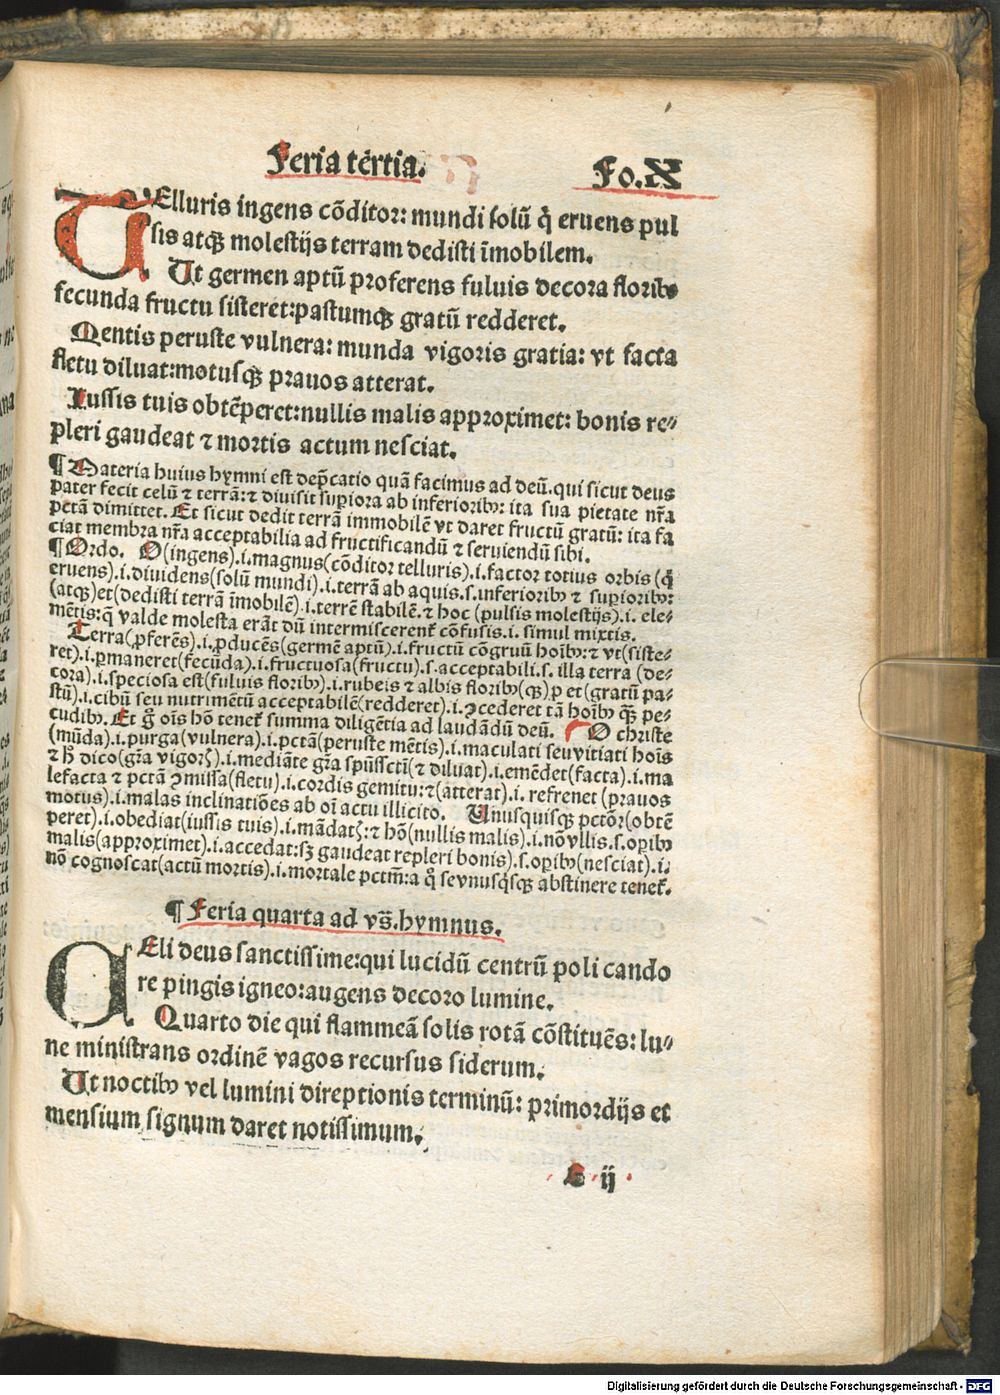 Feria tertia. Fo.X
TElluris ingens cōditor: mundi solū q̄ eruens pul
sis atqꝫ molestijs terram dedisti īmobilem.
Ut germen aptū proferens fuluis decora floribꝰ
fecunda fructu sisteret:pastumqꝫ gratū redderet.
Mentis peruste vulnera: munda vigoris gratia: vt facta
fletu diluat:motusqꝫ prauos atterat.
Iussis tuis obtēperet:nullis malis approximet: bonis re⸗
pleri gaudeat ⁊ mortis actum nesciat.
¶ Materia huius hymni est dep̄catio quā facimus ad deū.qui sicut deus
pater fecit celū ⁊ terrā:⁊ diuisit suꝑiora ab inferioribꝰ: ita sua pietate nr̄a
pctā dimittet. Et sicut dedit terrā immobilē vt daret fructū gratū: ita fa
ciat membra nr̄a acceptabilia ad fructificandū ⁊ seruiendū sibi.
¶ Ordo. O(ingens).i.magnus(cōditor telluris).i.factor totius orbis (q̄
eruens).i.diuidens(solū mundi).i.terrā ab aquis.s.inferioribꝰ ⁊ suꝑioribꝰ:
(atqꝫ)et(dedisti terrā īmobilē).i.terrē stabilē.⁊ hoc (pulsis molestijs).i. ele⸗
mētis:q̄ valde molesta erāt dū intermiscerent̄ cōfusis.i. simul mixtis.
Terra(ꝓferēs).i.ꝓducēs(germē aptū).i.fructū cōgruū hoībꝰ:⁊ vt(siste⸗
ret).i.ꝑmaneret(fecūda).i.fructuosa(fructu).s.acceptabili.s. illa terra (de⸗
cora).i.speciosa est(fuluis floribꝰ).i.rubeis ⁊ albis floribꝰ(qꝫ)ꝑ et(gratū pa⸗
stū).i.cibū seu nutrimētū acceptabilē(redderet).i.ꝯcederet tā hoībꝰ qꝫ̄ pe⸗
cudibꝰ. Et g̊ ois̄ hō tenet̄ summa diligētia ad laudādū deū. O christe
(mūda).i.purga(vulnera).i.pctā(peruste mētis).i.maculati seu vitiati hois̄
⁊ h̥ dico(gr̄a vigorꝭ).i.mediāte gr̄a spūssctī(⁊ diluat).i.emēdet(facta).i.ma
lefacta ⁊ pctā ꝯmissa(fletu).i.cordis gemitu:⁊(atterat).i. refrenet (prauos
motus).i.malas inclinatiōes ab oī actu illicito. Unusquisqꝫ pctōr(obtē
peret).i.obediat(iussis tuis).i.mādatꝭ:⁊ hō(nullis malis).i.nōvllis.s.oꝑibꝰ
malis(approximet).i.accedat:sꝫ gaudeat repleri bonis).s.oꝑibꝰ(nesciat).i.
nō cognoscat(actū mortis).i.mortale pctm̄:a q̊ seynusq̇sqꝫ abstinere tenet̄.
¶ Feria quarta ad vs̄.hymnus.
CEli deus sanctissime:qui lucidū centrū poli cando
re pingis igneo:augens decoro lumine.
Quarto die qui flammeā solis rotā cōstituēs: lu⸗
ne ministrans ordinē vagos recursus siderum.
Ut noctibꝰ vel lumini direptionis terminū: primordijs et
mensium signum daret notissimum.
B ij
Digitalisierung gefördert durch die Deutsche Forschungsgemeinschaft - DFG